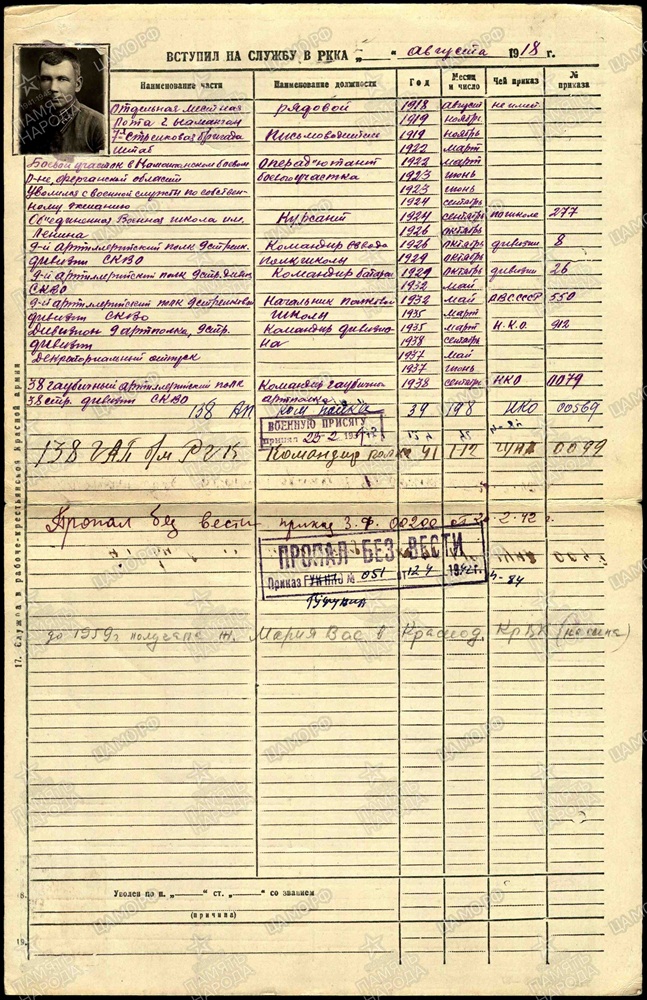 ВСТУПИЛ НА СЛУЖБУ В РККА „ — “ августа 1918 г.
Наименование части Наименование должности Год Месяц и число Чей приказ № приказа
Отдельная местная рядовой 1918 август не имел
Рота г. Наманган 1919 ноябрь
7-Стрелковая бригада Письмоводитель 1919 ноябрь
штаб 1922 март
Боевой участок в Наманганском боевом 1922 март
р-не, Ферганской области боевого участка 1923 июнь
Уволился с военной службы по собствен- 1923 июнь
ному желанию 1924 сентябрь
Объединенная Военная школа им. Курсант 1924 сентябрь по школе 277
Ленина 1926 октябрь
9-й артиллерийский полк 9 стрелк. Командир взвода 1926 октябрь дивизии 8
дивизии СКВО полкшколы 1929 октябрь
9-й артиллерийский полк 9 стр. дивиз. Командир батареи 1929 октябрь дивизии 26
СКВО 1932 май
9-й артиллерийский полк 9 стрелковой Начальник полковой 1932 май РВС СССР 550
дивизии СКВО школы 1935 март
Дивизион 9 артполка, 9 стр. Командир дивизио- 1935 март Н.К.О. 912
дивизии на 1938 сентябрь
Декраториальный отпуск 1937 май
1937 июнь
38 гаубичный артиллерийский полк Командир гаубичн. 1938 сентябрь НКО 0079
38 стр. дивизии СКВО артполка
138 АП ком полка 39 19/8 НКО 00569
ВОЕННУЮ ПРИСЯГУ
принял 23-2-1939
138 ГАП б/м РГК Командир полка 41 0099
Пропал без вести приказ З.Ф. 00200 2-42 г.
ПРОПАЛ БЕЗ ВЕСТИ
Приказ ГУК НКО № 051 от 12 4 1942 г.
до 1959 г получала ж. Мария Вас в Краснод. КрВК
17. Служба в рабоче-крестьянской Красной армии
18. Уволен по п. „ — “ ст. „ — “ со званием
(причина)
19.
ЦАМО.РФ
ПАМЯТЬ НАРОДА